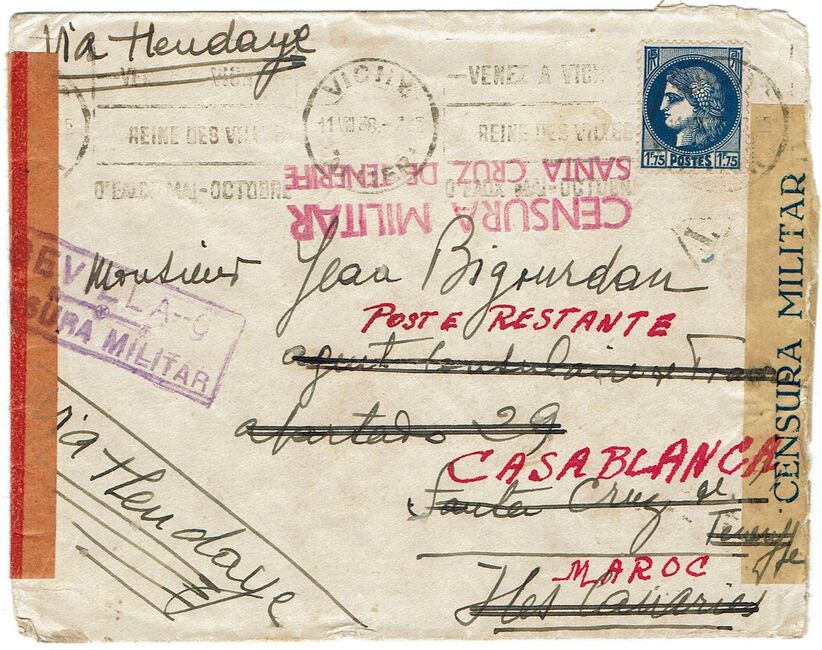 Via Hendaye
VENEZ A VICHY
REINE DES VILLES
D'EAUX MAI-OCTOBRE
VICHY
ALLIER
11 VIII 38
-VENEZ A VICHY
REINE DES VILLES
D'EAUX MAI-OCTOBRE
1F75
POSTES
1F75
CENSURA MILITAR
SANTA CRUZ DE TENERIFE
CENSURA MILITAR
SEVILLA-9
CENSURA MILITAR
Monsieur Jean Bigourdan
POSTE RESTANTE
agent consulaire
apartado 29
CASABLANCA
Santa Cruz de
Teneriffe
MAROC
Iles Canaries
via Hendaye